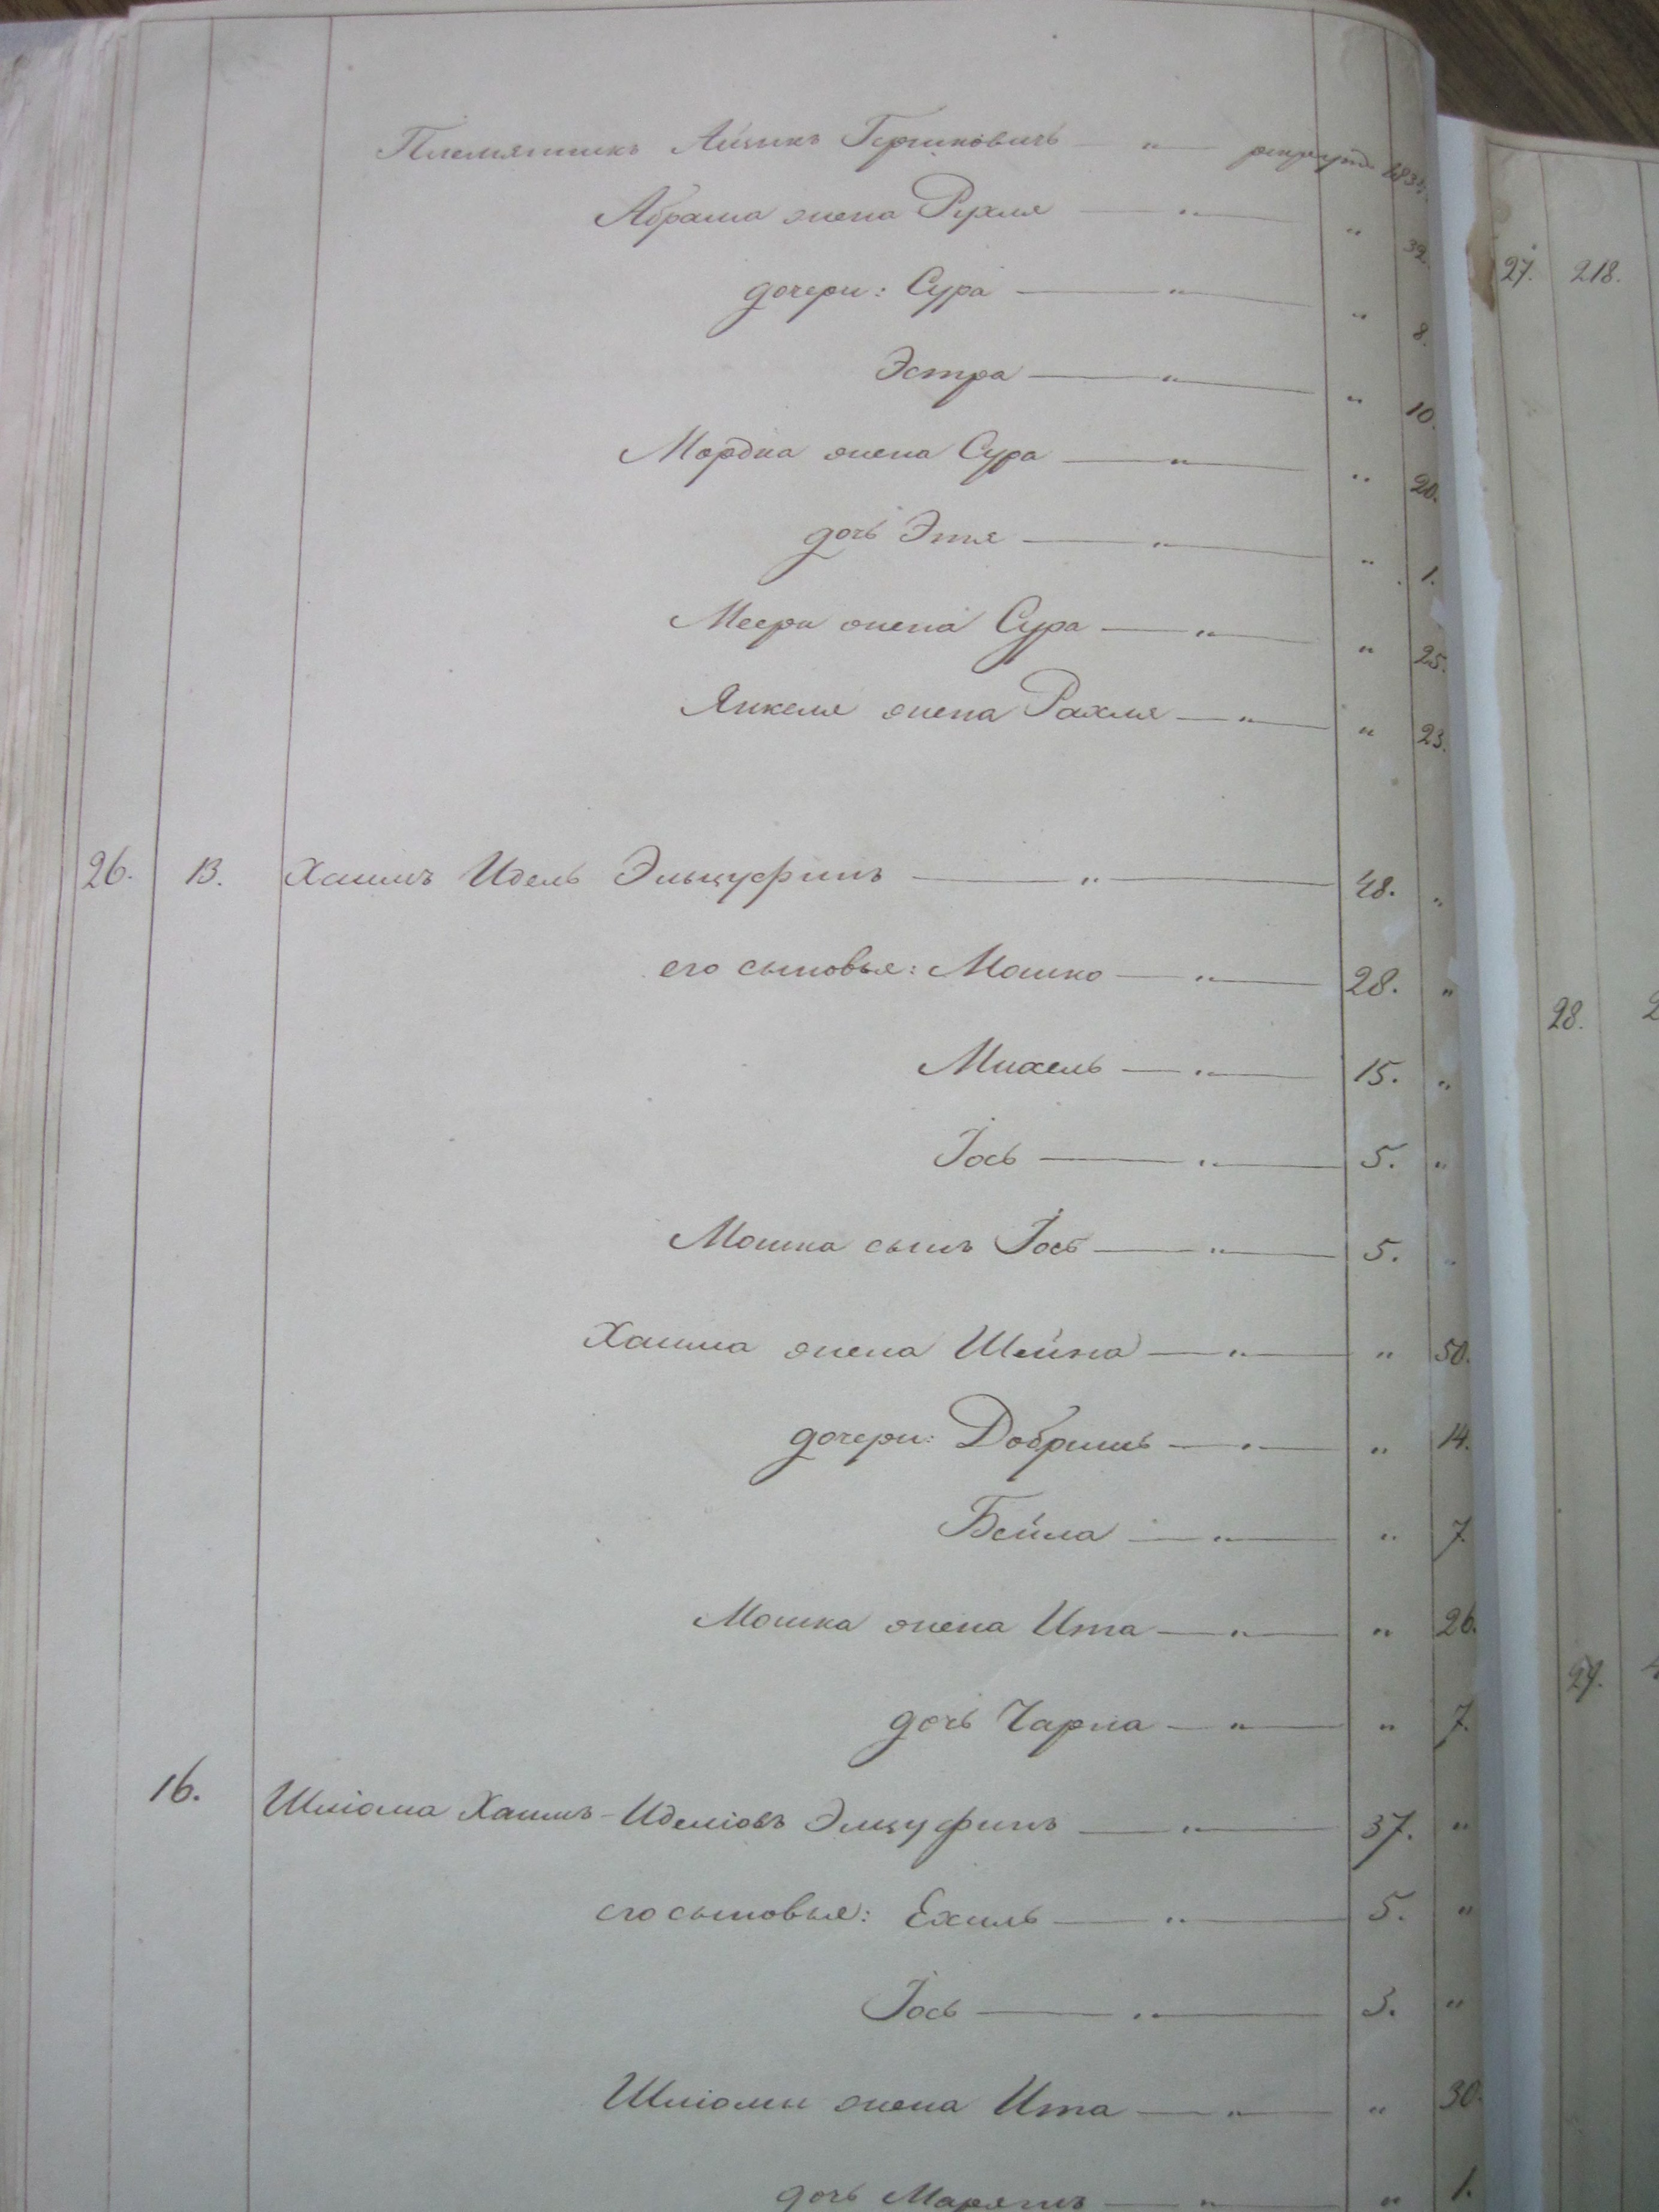 Племянникъ Айзикъ Гершковичъ — „ — рекрутъ 183
Абрама жена Рухля — „ — „ 32.
дочери: Сура — „ — „ 8.
Эстра — „ — „ 10.
Мордка жена Сура — „ — „ 20.
дочь Этля — „ — „ 1.
Меера жена Сура — „ — „ 25.
Янкеля жена Рахля — „ — „ 23.
26. 13. Хаимъ Идель Эльцуфинъ — „ — 48. „
его сыновья: Мошко — „ — 28. „
Михель — „ — 15. „
Іось — „ — 5. „
Мошка сынъ Іось — „ — 5. „
Хаима жена Шейна — „ — „ 50.
дочери: Добришъ — „ — „ 14.
Бейла — „ — „ 7.
Мошка жена Ита — „ — „ 26.
дочь Чарна — „ — „ 7.
16. Шліома Хаимъ-Иделіовъ Элцуфинъ — „ — 37. „
его сыновья: Ехиль — „ — 5. „
Іось — „ — 3. „
Шліомы жена Ита — „ — „ 30.
дочь Марямъ — „ — „ 1.
27. 218.
28. 2
29.